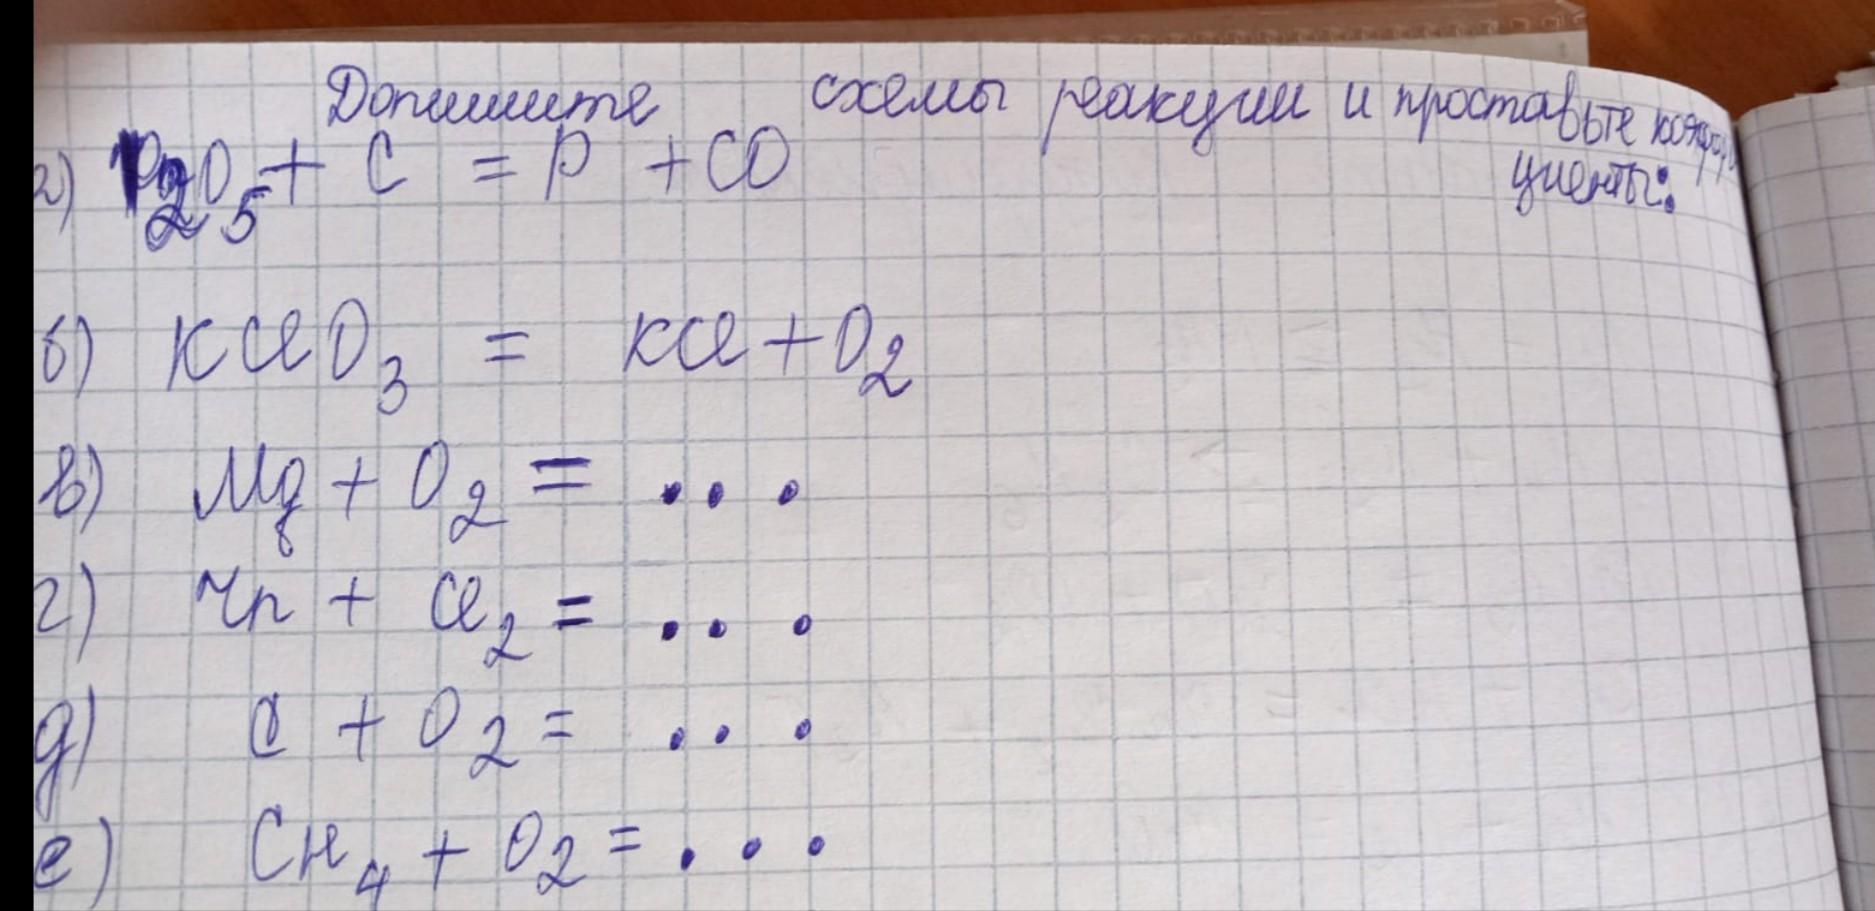 Допишите схемы реакции и проставьте коэффи
циенты:
а) P2O5 + C = P + CO
б) KClO3 = KCl + O2
в) Mg + O2 = ...
г) Zn + Cl2 = ...
д) C + O2 = ...
е) CH4 + O2 = ...